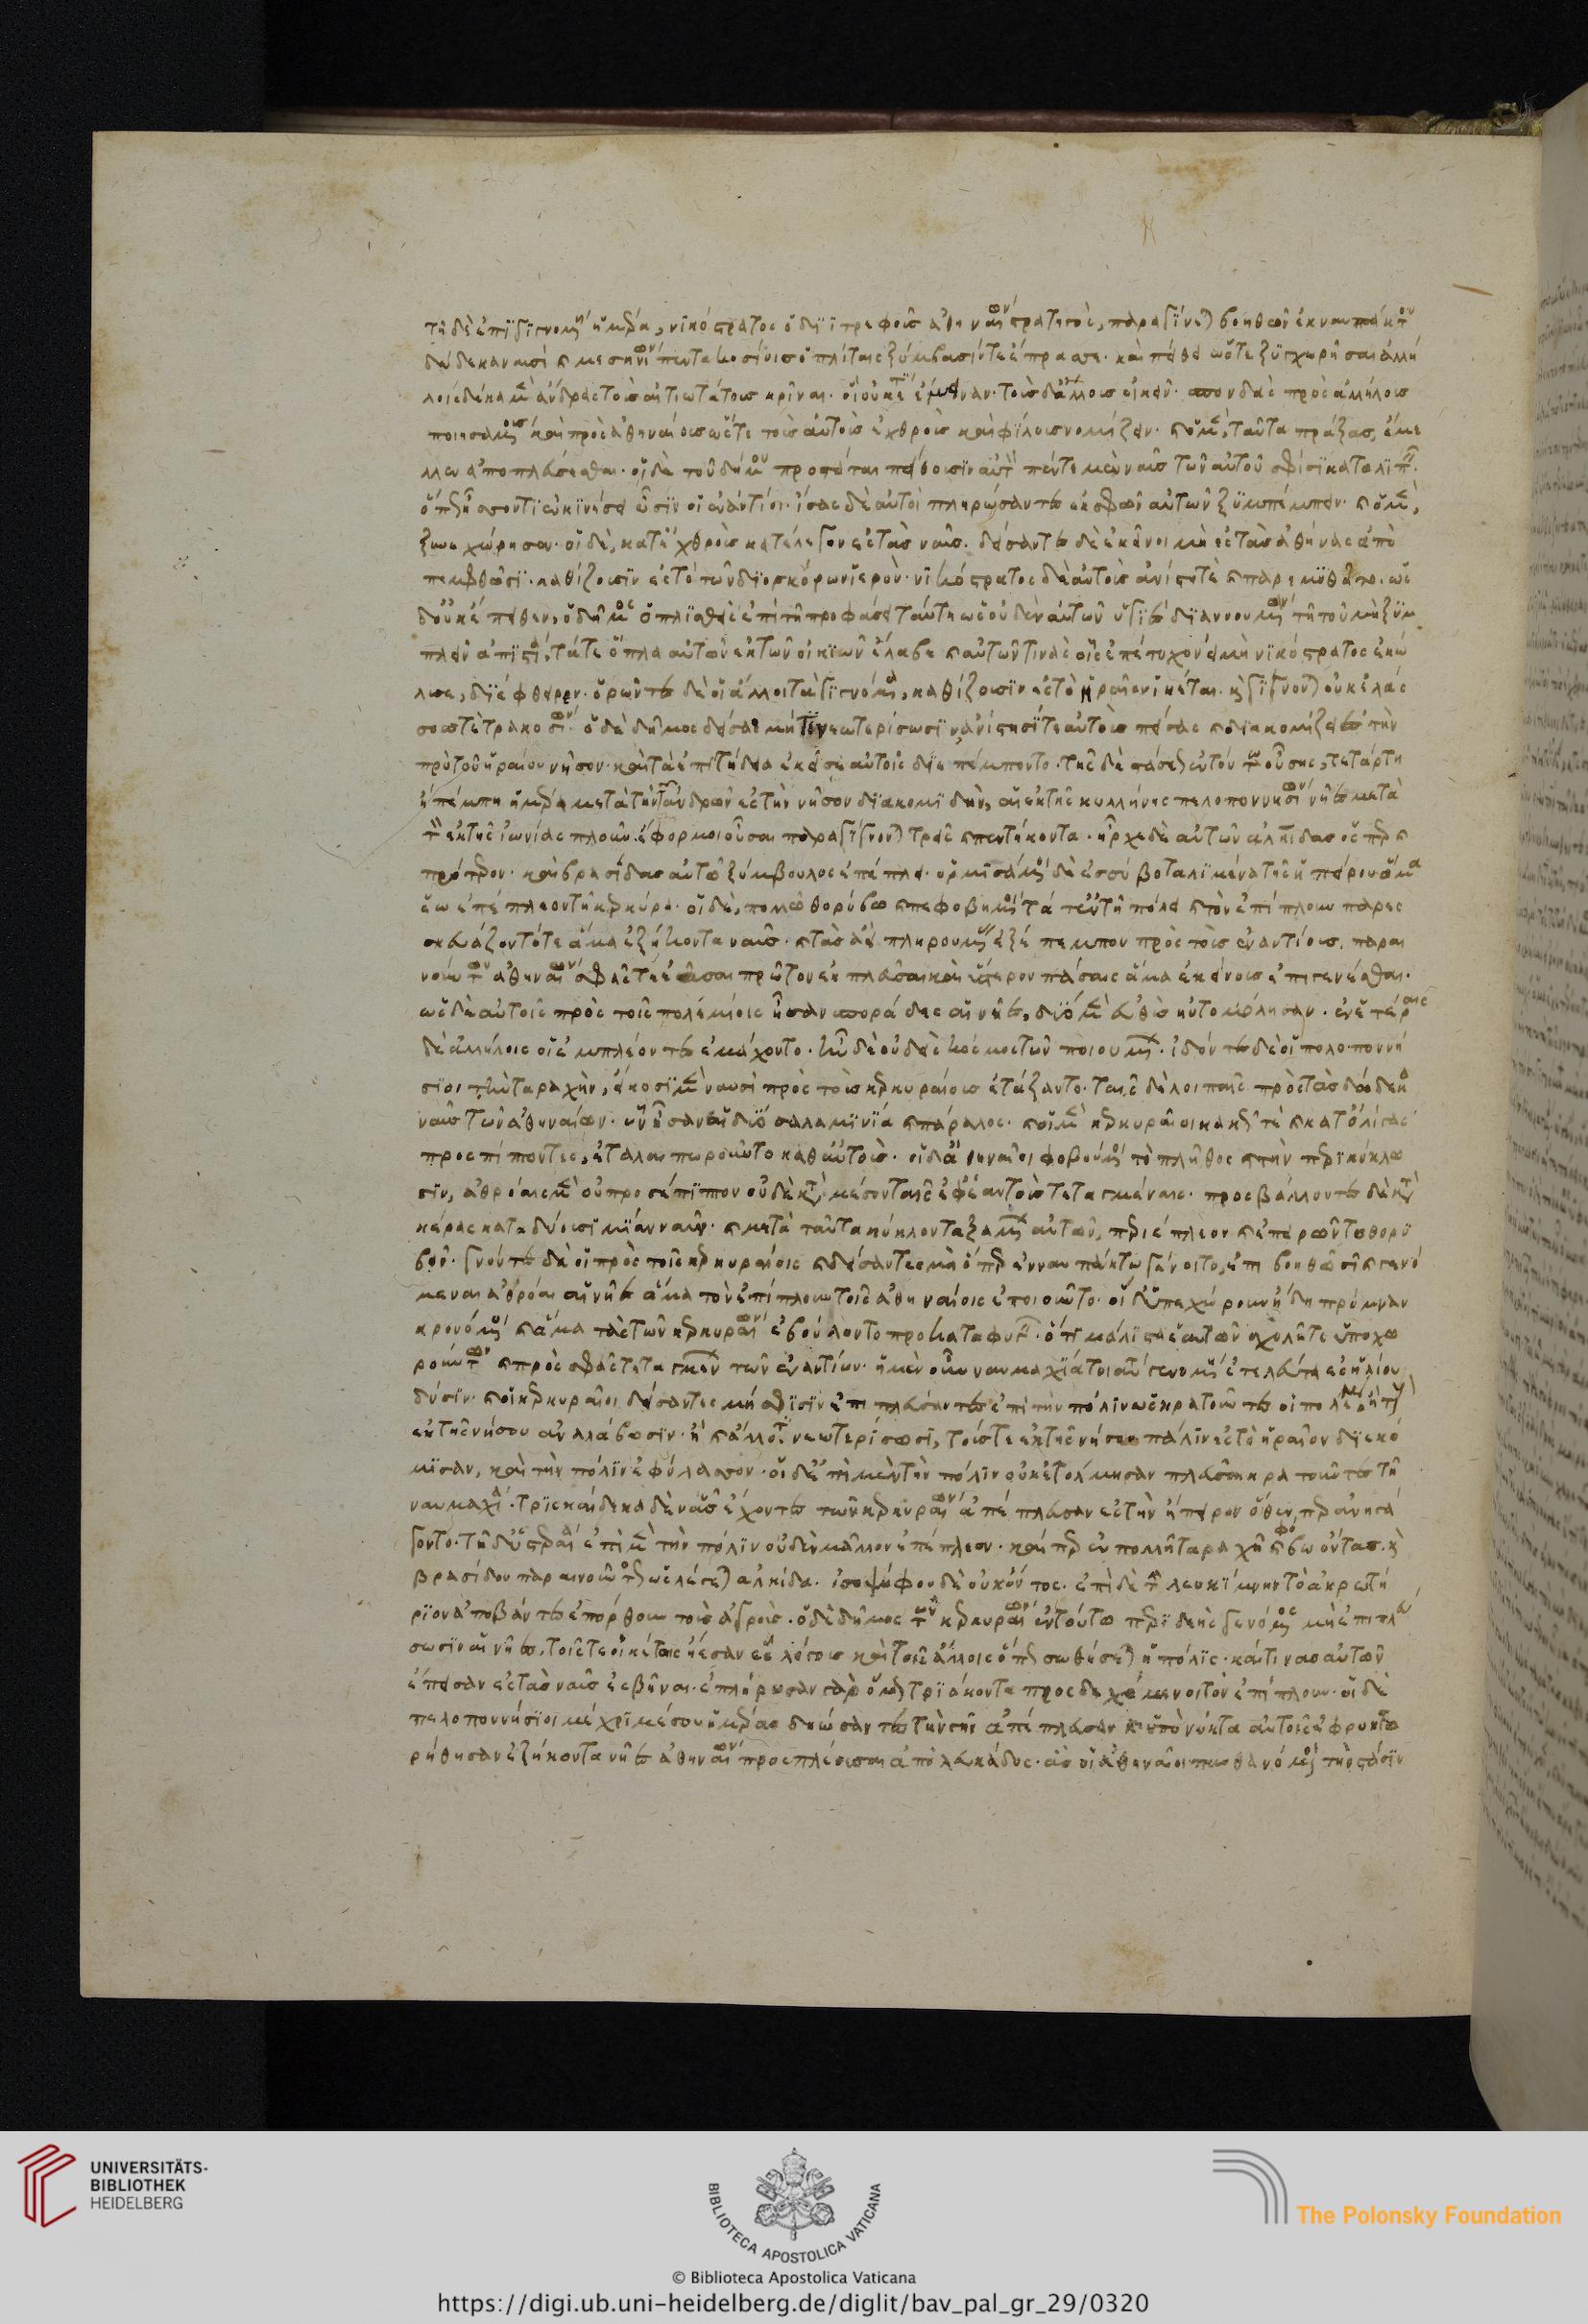 τῆ δὲ ἐπιγιγνομένη ἡμέρα, νικόστρατος ὁ διϊτρεφοῦς ἀθηναίων στρατηγὸς, παραγίνεται βοηθῶν ἐκ ναυπάκτου
δώδεκα ναυσὶ καὶ μεσηνίων πεντακοσίοις ὁπλίταις ξύμβασίν τε ἔπρασσε· καὶ πείθει ὥστε ξυγχωρῆσαι ἀλλή
λοις δέκα μὲν ἄνδρας τοὺς αἰτιωτάτους κρῖναι· οἳ οὐκέτι ἔμειναν· τοὺς δ' ἄλλους οἰκεῖν· σπονδὰς πρὸς ἀλλήλους
ποιησαμένους καὶ πρὸς ἀθηναίους ὥστε τοὺς αὐτοὺς ἐχθροὺς καὶ φίλους νομίζειν· καὶ ὁ μὲν, ταῦτα πράξας, ἔμε
λλεν ἀποπλεύσεσθαι· οἱ δὲ τοῦ δήμου προστάται πείθουσιν αὐτὸν πέντε μὲν ναῦς τῶν αὐτοῦ σφίσι καταλιπεῖν·
ὅπως ἧσσόν τι ἐν κινήσει ὦσιν οἱ ἐναντίοι· ἴσας δὲ αὐτοὶ πληρώσαντες ἐκ σφῶν αὐτῶν ξυμπέμπειν· καὶ ὁ μὲν,
ξυνεχώρησεν· οἱ δὲ, κατ' ἐχθροὺς κατέλεγον ἐς τὰς ναῦς. δείσαντες δὲ ἐκεῖνοι μὴ ἐς τὰς ἀθήνας ἀπο
πεμφθῶσι· καθίζουσιν ἐς τὸ τῶν διοσκόρων ἱερὸν· νικόστρατος δὲ αὐτοὺς ἀνίστη τὲ καὶ παρεμυθεῖτο. ὡς
δ' οὐκ ἔπειθεν, ὁ δῆμος ὁπλισθεὶς ἐπὶ τῆ προφάσει ταύτη ὡς οὐδὲν αὐτῶν ὑγιὲς διανοουμένων τῆ τοῦ μὴ ξυμ
πλεῖν ἀπιστία, τά τε ὅπλα αὐτῶν ἐκ τῶν οἰκιῶν ἔλαβε καὶ αὐτῶν τινὰς οἷς ἐπέτυχον εἰ μὴ νικόστρατος ἐκώ
λυσε, διέφθειραν· ὁρῶντες δὲ οἱ ἄλλοι τὰ γιγνόμενα, καθίζουσιν ἐς τὸ ἡραῖον ἱκέται. καὶ γίγνονται οὐκ ἐλάσ
σους τετρακοσίων· ὁ δὲ δῆμος δείσας μή τι νεωτερίσωσιν ἀνίστησί τε αὐτοὺς πείσας καὶ διακομίζει ἐς τὴν
πρὸ τοῦ ἡραίου νῆσον· καὶ τὰ ἐπιτήδεια ἐκεῖσε αὐτοῖς διεπέμποντο. τῆς δὲ στάσεως ἐν τούτω οὔσης, τετάρτη
ἢ πέμπτη ἡμέρα μετὰ τὴν τῶν ἀνδρῶν ἐς τὴν νῆσον διακομιδὴν, αἱ ἐκ τῆς κυλλήνης πελοποννησίων νῆες μετὰ
τὸν ἐκ τῆς ἰωνίας πλοῦν ἔφορμοι οὖσαι παραγίγνονται τρεῖς καὶ πεντήκοντα. ἦρχε δὲ αὐτῶν ἀλκίδας ὅσπερ καὶ
πρότερον. καὶ βρασίδας αὐτῷ ξύμβουλος ἐπέπλει· ὁρμισάμενοι δὲ ἐς σύβοτα λιμένα τῆς ἠπείρου ἅμα
ἕω ἐπέπλεον τῆ κερκύρα· οἱ δὲ, πολλῷ θορύβω καὶ πεφοβημένοι τά τ' ἐν τῆ πόλει καὶ τὸν ἐπίπλουν παρεσ
κευάζοντό τε ἅμα ἑξήκοντα ναῦς· καὶ τὰς ἀεὶ πληρουμένας ἐξέπεμπον πρὸς τοὺς ἐναντίους. παραι
νούντων ἀθηναίων σφᾶς τε ἐᾶσαι πρῶτον ἐκπλεῦσαι καὶ ὕστερον πάσαις ἅμα ἐκείνους ἐπιγενέσθαι.
ὡς δὲ αὐτοῖς πρὸς τοῖς πολεμίοις ἦσαν σποράδες αἱ νῆες, δύο μὲν εὐθὺς ηὐτομόλησαν. ἐν ἑτέραις
δὲ ἀλλήλοις οἱ ἐμπλέοντες ἐμάχοντο. ἦν δὲ οὐδεὶς κόσμος τῶν ποιουμένων. ἰδόντες δὲ οἱ πελοποννή
σιοι τὴν ταραχὴν, εἴκοσι μὲν ναυσὶ πρὸς τοὺς κερκυραίους ἐτάξαντο. ταῖς δὲ λοιπαῖς πρὸς τὰς δώδεκα
ναῦς τῶν ἀθηναίων· ὧν ἦσαν αἱ δύο σαλαμινία καὶ πάραλος· καὶ οἱ μὲν κερκυραῖοι κακῶς τὲ καὶ κατ' ὀλίγας
προσπίπτοντες, ἐταλαιπωροῦντο καθ' αὑτοὺς· οἱ δ' ἀθηναῖοι φοβούμενοι τὸ πλῆθος καὶ τὴν περικύκλω
σιν, ἀθρόαις μὲν οὐ προσέπιπτον οὐδὲ κατὰ μέσον ταῖς ἐφ' ἑαυτοὺς τεταγμέναις· προσβάλλοντες δὲ κατὰ
κέρας καταδύουσι μίαν ναῦν· καὶ μετὰ ταῦτα κύκλον ταξαμένων αὐτῶν, περιέπλεον καὶ ἐπειρῶντο θορυ
βεῖν· γνόντες δὲ οἱ πρὸς τοῖς κερκυραίοις καὶ δείσαντες μὴ ὅπερ ἐν ναυπάκτω γένοιτο, ἐπιβοηθοῦσι καὶ γενό
μεναι ἀθρόαι αἱ νῆες ἅμα τὸν ἐπίπλουν τοῖς ἀθηναίοις ἐποιοῦντο· οἱ δ' ὑπεχώρουν ἤδη πρύμναν
κρουόμενοι καὶ ἅμα τὰς τῶν κερκυραίων ἐβούλοντο προκαταφυγεῖν ὅτι μάλιστα ἑαυτῶν σχολῆ τε ὑποχω
ρούντων καὶ πρὸς σφᾶς τεταγμένων τῶν ἐναντίων· ἡ μὲν οὖν ναυμαχία τοιαύτη γενομένη ἐτελεύτα ἐς ἡλίου
δύσιν· καὶ οἱ κερκυραῖοι δείσαντες μὴ σφίσιν ἐπιπλεύσαντες ἐπὶ τὴν πόλιν ὡς κρατοῦντες οἱ πολέμιοι ἢ τοὺς
ἐκ τῆς νήσου ἀναλάβωσιν· ἢ καὶ ἄλλο τι νεωτερίσωσι, τούς τε ἐκ τῆς νήσου πάλιν ἐς τὸ ἡραῖον διεκό
μισαν, καὶ τὴν πόλιν ἐφύλασσον· οἱ δ' ἐπὶ μὲν τὴν πόλιν οὐκ ἐτόλμησαν πλεῦσαι κρατοῦντες τῆ
ναυμαχία· τρισκαίδεκα δὲ ναῦς ἔχοντες τῶν κερκυραίων ἀπέπλευσαν ἐς τὴν ἤπειρον ὅθεν περ ἀνηγά
γοντο· τῆ δ' ὑστεραία ἐπὶ μὲν τὴν πόλιν οὐδὲν μᾶλλον ἐπέπλεον· καίπερ ἐν πολλῆ ταραχῆ καὶ φόβω ὄντας. καὶ
βρασίδου παραινοῦντος ὡς λέγεται ἀλκίδα. ἰσοψήφου δὲ οὐκ ὄντος. ἐπὶ δὲ τὴν λευκίμνην τὸ ἀκρωτή
ριον ἀποβάντες ἐπόρθουν τοὺς ἀγροὺς. ὁ δὲ δῆμος τῶν κερκυραίων ἐν τούτω περιδεὴς γενόμενος μὴ ἐπιπλεύ
σωσιν αἱ νῆες, τοῖς τε ἱκέταις ᾔεσαν ἐς λόγους καὶ τοῖς ἄλλοις ὅπως σωθήσεται ἡ πόλις· καί τινας αὐτῶν
ἔπεισαν ἐς τὰς ναῦς ἐσβῆναι· ἐπλήρωσαν γὰρ ὅμως τριάκοντα προσδεχόμενοι τὸν ἐπίπλουν. οἱ δὲ
πελοποννήσιοι μέχρι μέσου ἡμέρας δηώσαντες τὴν γῆν ἀπέπλευσαν καὶ ὑπὸ νύκτα αὐτοῖς ἐφρυκτω
ρήθησαν ἑξήκοντα νῆες ἀθηναίων προσπλέουσαι ἀπὸ λευκάδος· ἃς οἱ ἀθηναῖοι πυνθανόμενοι τὴν στάσιν
UNIVERSITÄTS-
BIBLIOTHEK
HEIDELBERG
BIBLIOTECA APOSTOLICA VATICANA
The Polonsky Foundation
© Biblioteca Apostolica Vaticana
https://digi.ub.uni-heidelberg.de/diglit/bav_pal_gr_29/0320